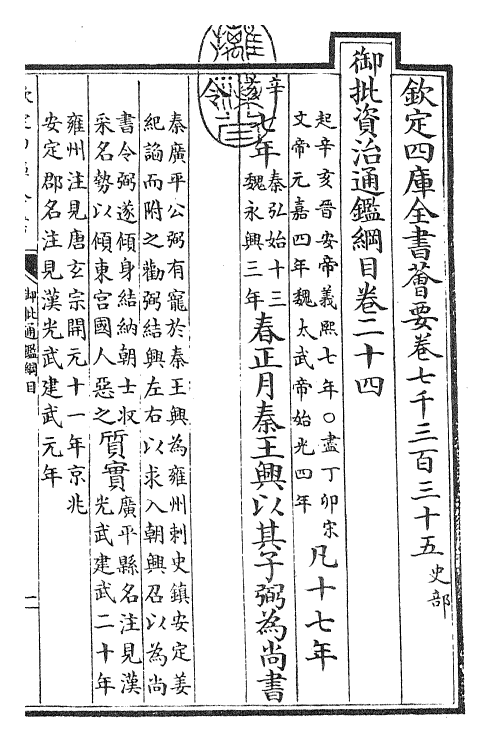 欽定四庫全書薈要卷七千三百三十五 史部
御批資治通鑑綱目卷二十四
起辛亥晉安帝義熙七年○盡丁卯宋
文帝元嘉四年魏太武帝始光四年 凡十七年
辛亥 七年 秦弘始十三
魏永興三年 春正月秦王興以其子弼為尚書
令
秦廣平公弼有寵於秦王興為雍州刺史鎮安定姜
紀諂而附之勸弼結興左右以求入朝興召以為尚
書令弼遂傾身結納朝士收
采名勢以傾東宮國人惡之 質實 廣平縣名注見漢
光武建武二十年
雍州注見唐玄宗開元十一年京兆
安定郡名注見漢光武建武元年
御批通鑑綱目